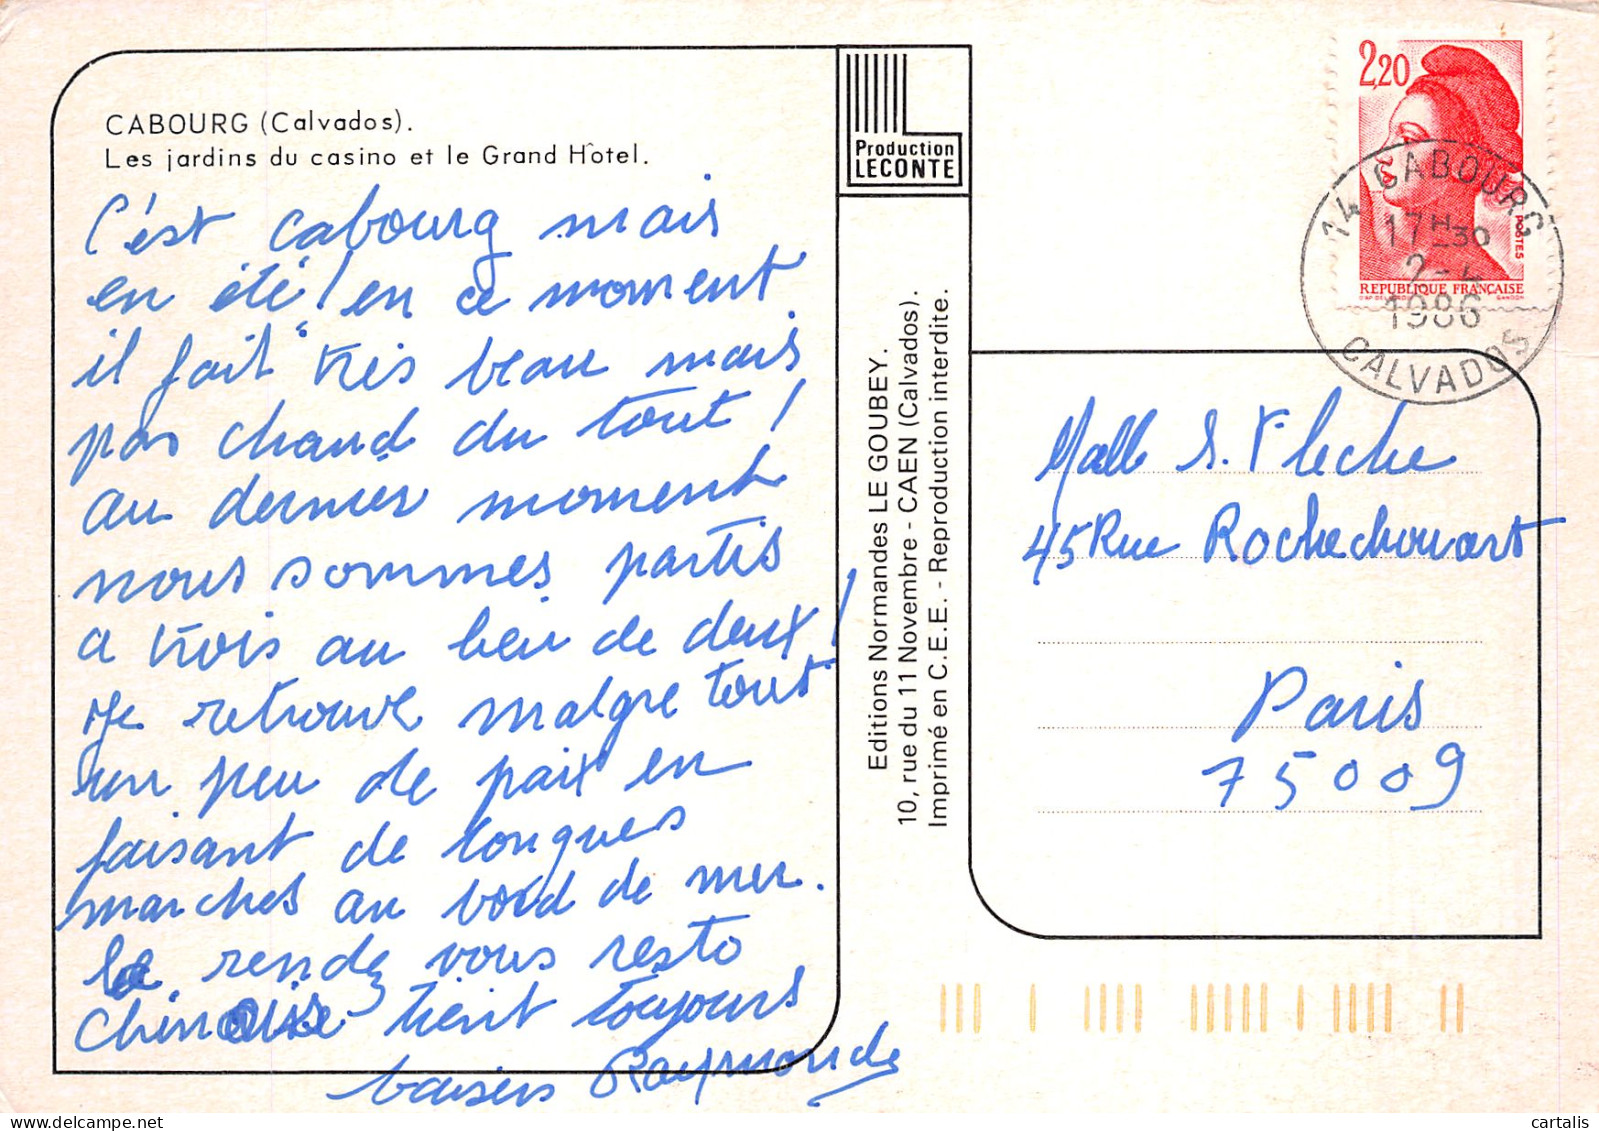 CABOURG (Calvados).
Les jardins du casino et le Grand Hôtel.
C'est Cabourg mais
en été ! en ce moment
il fait très beau mais
pas chaud du tout !
au dernier moment
nous sommes partis
a trois au lieu de deux !
Je retrouve malgre tout
un peu de paix en
faisant de longues
marches au bord de mer.
le rendez vous resto
chinois tient toujours
baisers Raymonde
Production
LECONTE
Editions Normandes LE GOUBEY.
10, rue du 11 Novembre - CAEN (Calvados).
Imprimé en C.E.E. - Reproduction interdite.
2,20
POSTES
REPUBLIQUE FRANÇAISE
GANDON
14 CABOURG
17H30
2-4
1986
CALVADOS
Melle S. Fleche
45 Rue Rochechouart
Paris
75009
cartalis